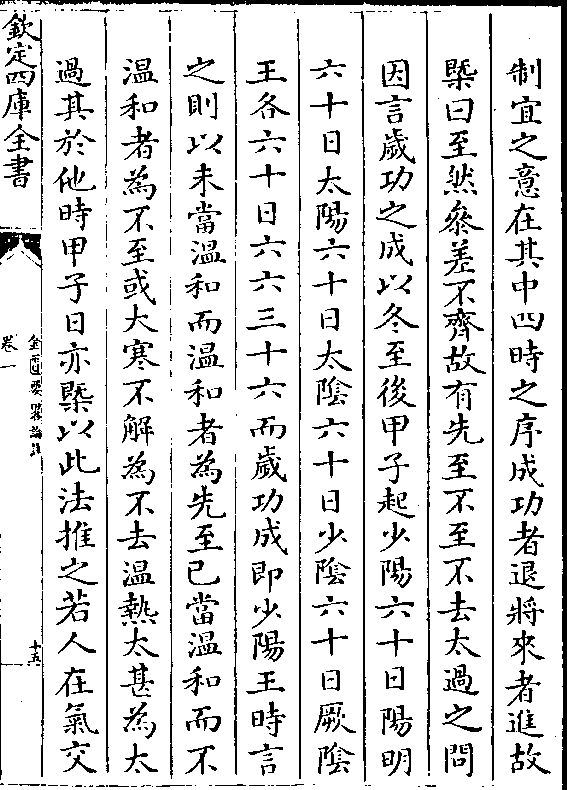 制宜之意在其中四時之序成功者退將來者進故
槩曰至然叅差不齊故有先至不至不去太過之問
因言歲功之成以冬至後甲子起少陽六十日陽明
六十日太陽六十日太陰六十日少陰六十日厥陰
王各六十日六六三十六而歲功成即少陽王時言
之則以未當溫和而溫和者為先至已當溫和而不
溫和者為不至或大寒不解為不去溫熱太甚為太
過其於他時甲子日亦槩以此法推之若人在氣交
欽定四庫全書
金匱要畧論註
卷一
十五